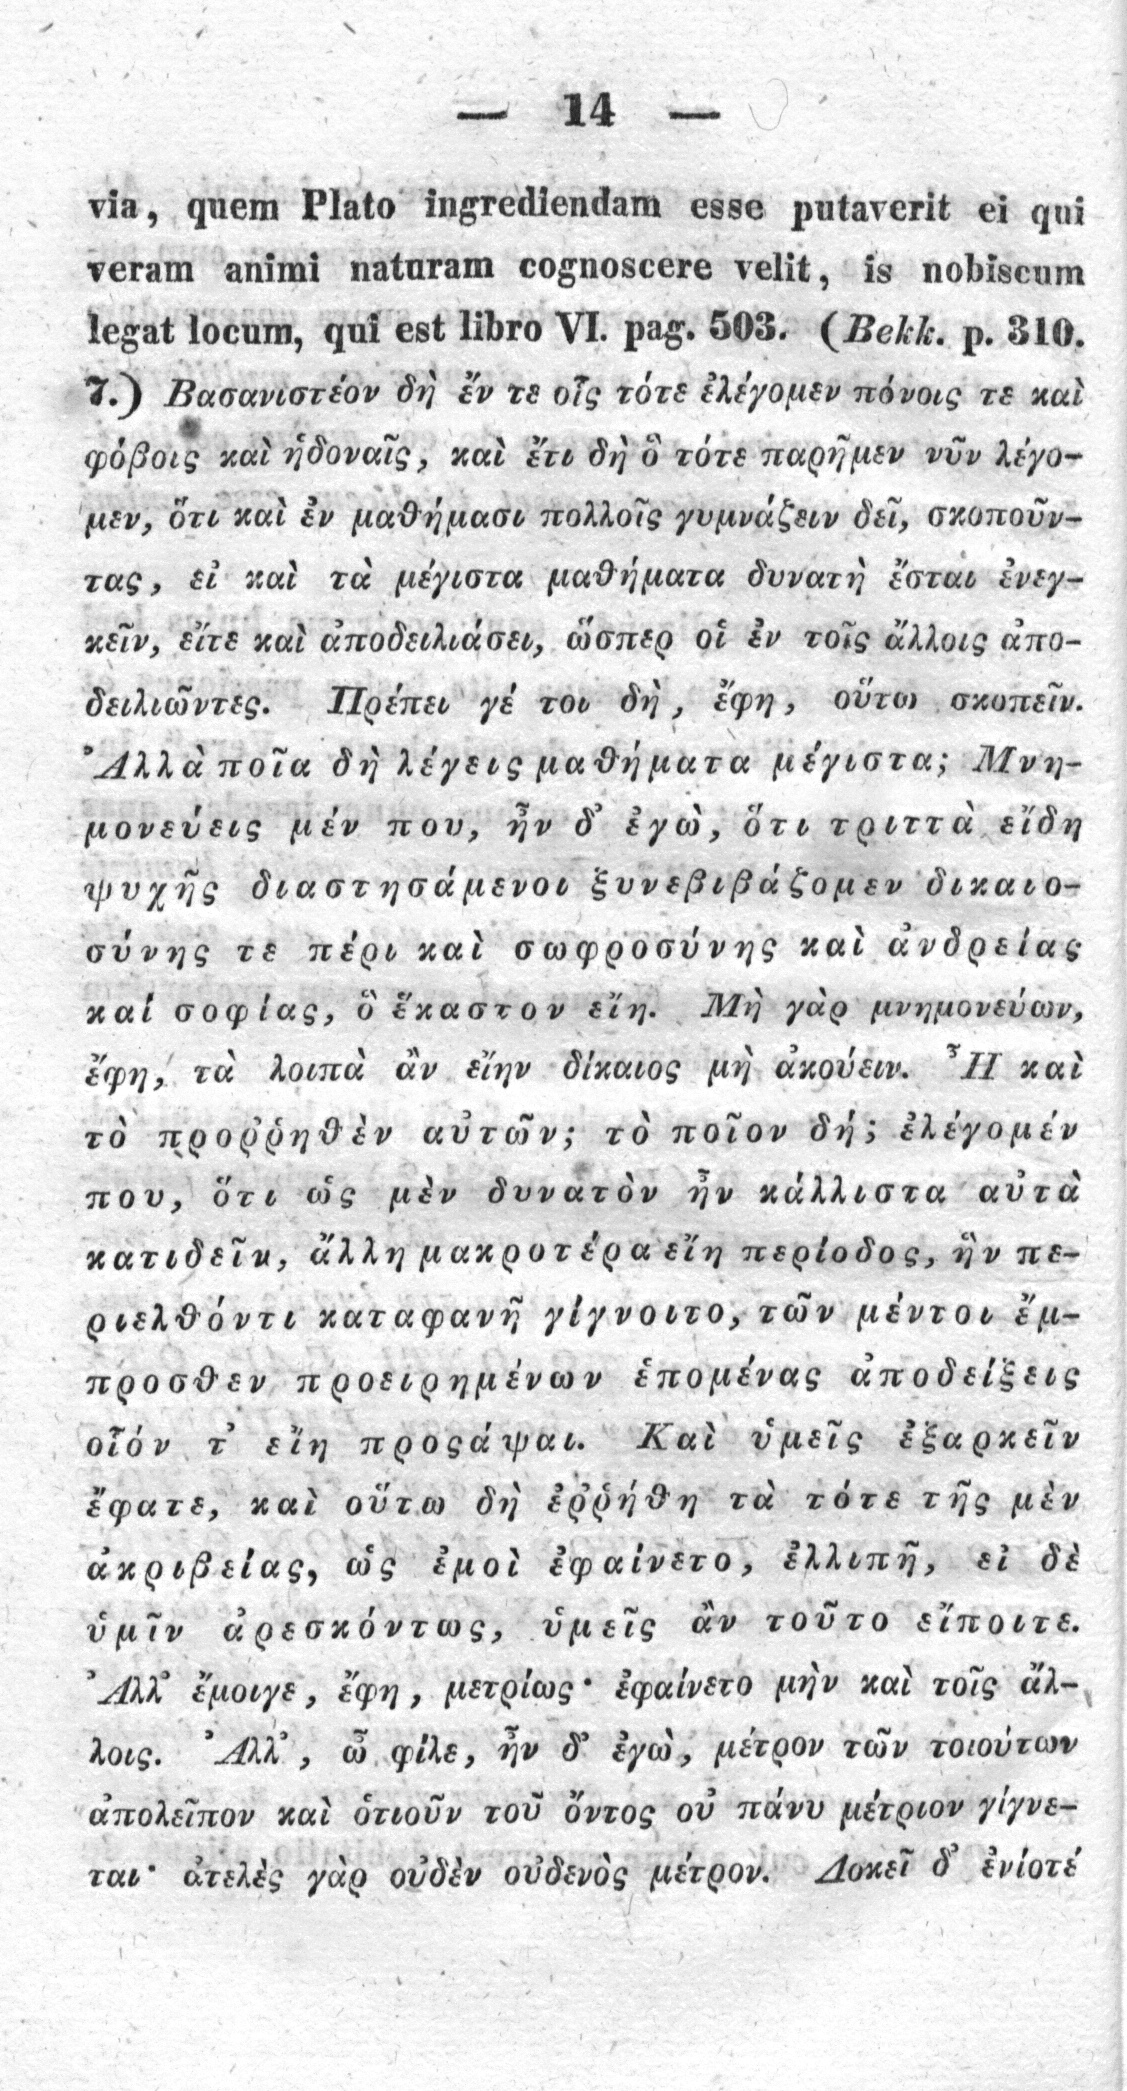 — 14 —
via, quem Plato ingrediendam esse putaverit ei qui
veram animi naturam cognoscere velit, is nobiscum
legat locum, qui est libro VI. pag. 503. (Bekk. p. 310.
7.) Βασανιστέον δὴ ἔν τε οἷς τότε ἐλέγομεν πόνοις τε καὶ
φόβοις καὶ ἡδοναῖς, καὶ ἔτι δὴ ὃ τότε παρῆμεν νῦν λέγο-
μεν, ὅτι καὶ ἐν μαθήμασι πολλοῖς γυμνάζειν δεῖ, σκοποῦν-
τας, εἰ καὶ τὰ μέγιστα μαθήματα δυνατὴ ἔσται ἐνεγ-
κεῖν, εἴτε καὶ ἀποδειλιάσει, ὥσπερ οἱ ἐν τοῖς ἄλλοις ἀπο-
δειλιῶντες. Πρέπει γέ τοι δὴ, ἔφη, οὕτω σκοπεῖν.
Ἀλλὰ ποῖα δὴ λέγεις μαθήματα μέγιστα; Μνη-
μονεύεις μέν που, ἦν δ' ἐγὼ, ὅτι τριττὰ εἴδη
ψυχῆς διαστησάμενοι ξυνεβιβάζομεν δικαιο-
σύνης τε πέρι καὶ σωφροσύνης καὶ ἀνδρείας
καί σοφίας, ὃ ἕκαστον εἴη. Μὴ γὰρ μνημονεύων,
ἔφη, τὰ λοιπὰ ἂν εἴην δίκαιος μὴ ἀκούειν. Ἦ καὶ
τὸ προῤῥηθὲν αὐτῶν; τὸ ποῖον δή; ἐλέγομέν
που, ὅτι ὡς μὲν δυνατὸν ἦν κάλλιστα αὐτὰ
κατιδεῖν, ἄλλη μακροτέρα εἴη περίοδος, ἣν πε-
ριελθόντι καταφανῆ γίγνοιτο, τῶν μέντοι ἔμ-
προσθεν προειρημένων ἑπομένας ἀποδείξεις
οἷόν τ' εἴη προςάψαι. Καὶ ὑμεῖς ἐξαρκεῖν
ἔφατε, καὶ οὕτω δὴ ἐῤῥήθη τὰ τότε τῆς μὲν
ἀκριβείας, ὡς ἐμοὶ ἐφαίνετο, ἐλλιπῆ, εἰ δὲ
ὑμῖν ἀρεσκόντως, ὑμεῖς ἂν τοῦτο εἴποιτε.
Ἀλλ' ἔμοιγε, ἔφη, μετρίως· ἐφαίνετο μὴν καὶ τοῖς ἄλ-
λοις. Ἀλλ', ὦ φίλε, ἦν δ' ἐγὼ, μέτρον τῶν τοιούτων
ἀπολεῖπον καὶ ὁτιοῦν τοῦ ὄντος οὐ πάνυ μέτριον γίγνε-
ται· ἀτελὲς γὰρ οὐδὲν οὐδενὸς μέτρον. Δοκεῖ δ' ἐνίοτέ